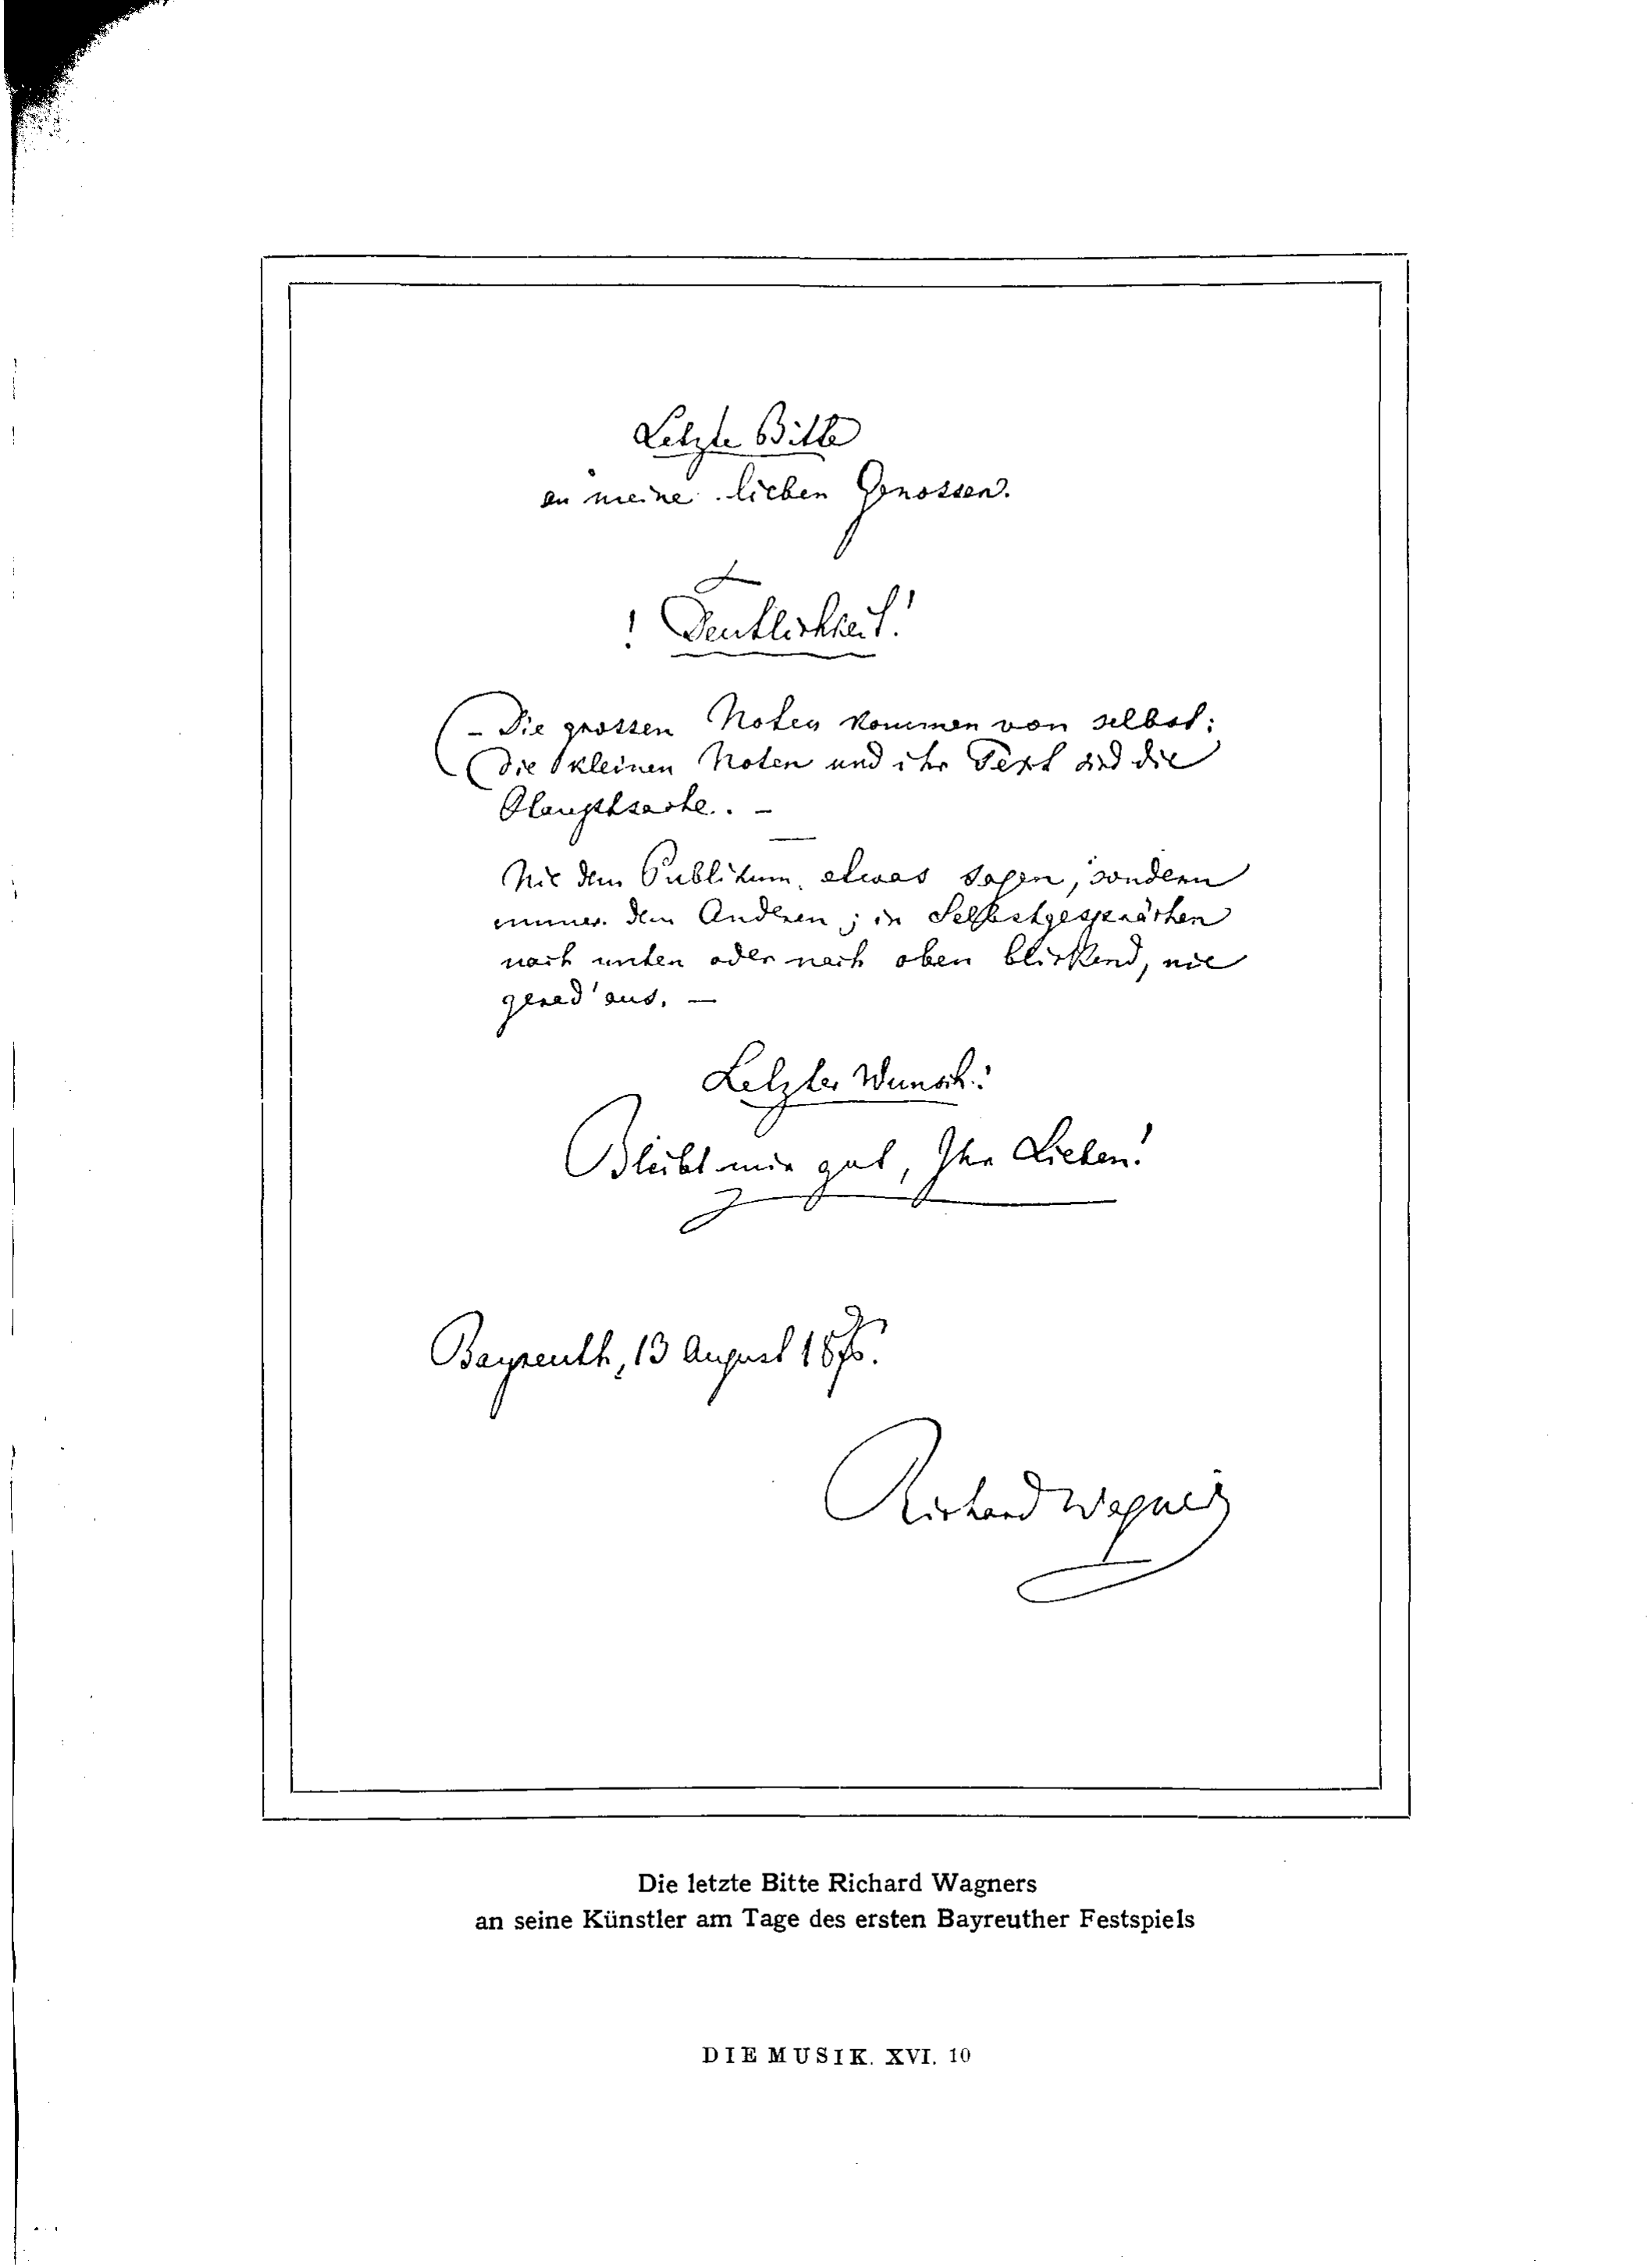 Letzte Bitte
an meine lieben Genossen.
! Deutlichkeit!
– Die grossen Noten kommen von selbst;
die kleinen Noten und ihr Text sind die
Hauptsache. –
Nie dem Publikum etwas sagen, sondern
immer dem Anderen; in Selbstgesprächen
nach unten oder nach oben blickend, nie
gerad'aus. –
Letzter Wunsch:
Bleibt mir gut, Ihr Lieben!
Bayreuth, 13 August 1876.
Richard Wagner
Die letzte Bitte Richard Wagners
an seine Künstler am Tage des ersten Bayreuther Festspiels
DIE MUSIK. XVI. 10